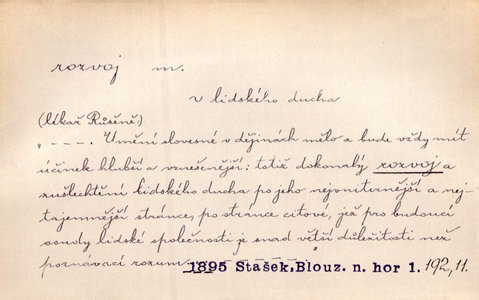 rozvoj m.
v lidského ducha
(lékař Růžěně:)
„ – – –. Umění slovesné v dějinách mělo a bude vždy mít
účinek hlubší a vznešenější: totiž dokonalý rozvoj a
zušlechtění lidského ducha po jeho nejniternější a nej-
tajemnější stránce, po stránce citové, jež pro budoucí
osudy lidské společnosti je snad větší důležitosti než
poznávací rozum. – – – – –
1895 Stašek, Blouz. n. hor 1. 192, 11.